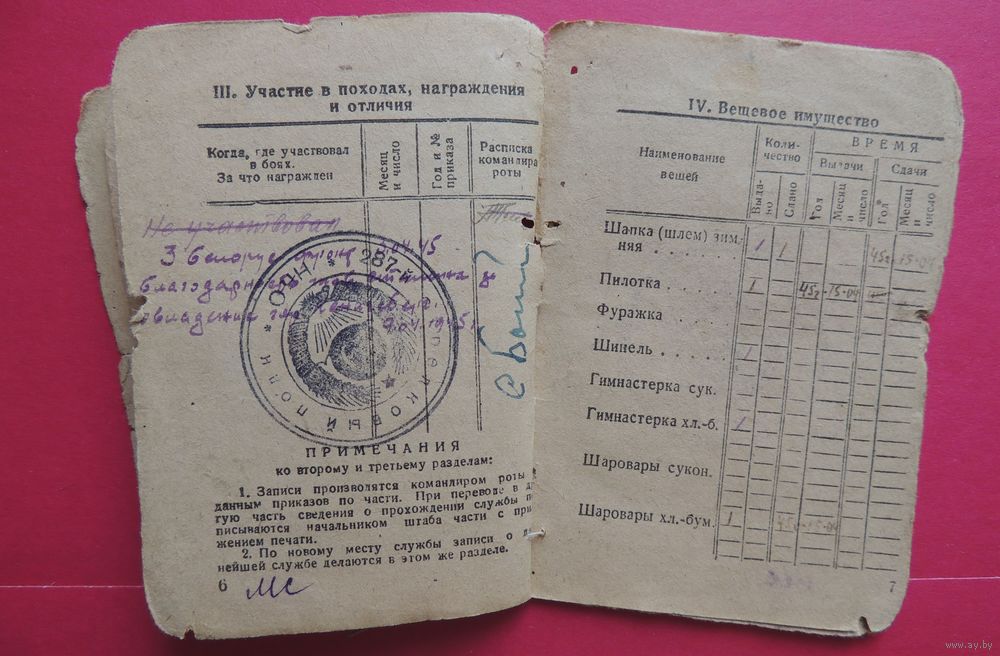 III. Участие в походах, награждения
и отличия
Когда, где участвовал
в боях.
За что награжден
Месяц
и число
Год и №
приказа
Расписка
командира
роты
Не участвовал
3 Белорус фронт
благодарность тов Сталина за
овладение
* 287-й
стрелковый полк *
ПРИМЕЧАНИЯ
ко второму и третьему разделам:
1. Записи производятся командиром роты
данным приказов по части. При переводе в д
гую часть сведения о прохождении службы п
писываются начальником штаба части с при
жением печати.
2. По новому месту службы записи о
нейшей службе делаются в этом же разделе.
6
МС
IV. Вещевое имущество
Наименование
вещей
Коли-
чество
ВРЕМЯ
Выдачи
Сдачи
Выда-
но
Сдано
Год
Месяц
и
число
Год
Месяц
и
число
Шапка (шлем) зим-
няя . . . . . 1 1 45г 15-04
Пилотка . . . . 1 45г 15-04
Фуражка . . . .
Шинель . . . . . 1
Гимнастерка сук.
Гимнастерка хл.-б. 1
Шаровары сукон.
Шаровары хл.-бум. 1 45г 15-04
7
www.ay.by